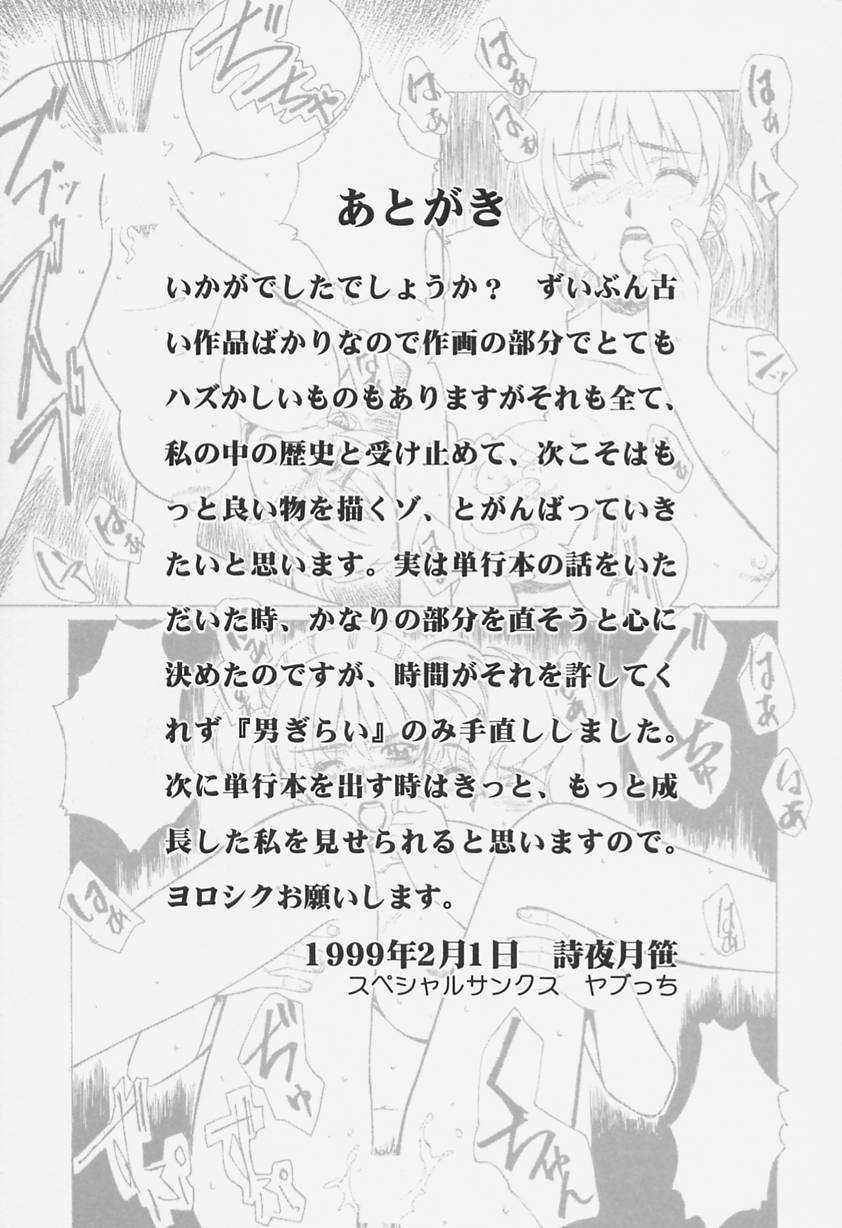 あとがき
いかがでしたでしょうか？　ずいぶん古
い作品ばかりなので作画の部分でとても
ハズかしいものもありますがそれも全て、
私の中の歴史と受け止めて、次こそはも
っと良い物を描くゾ、とがんばっていき
たいと思います。実は単行本の話をいた
だいた時、かなりの部分を直そうと心に
決めたのですが、時間がそれを許してく
れず『男ぎらい』のみ手直ししました。
次に単行本を出す時はきっと、もっと成
長した私を見せられると思いますので。
ヨロシクお願いします。
1999年2月1日　詩夜月笹
スペシャルサンクス　ヤブっち
はぁ
はぁ
はぁ
はぁ
はぁ
はぁ
はぁ
はぁ
ぢゅ